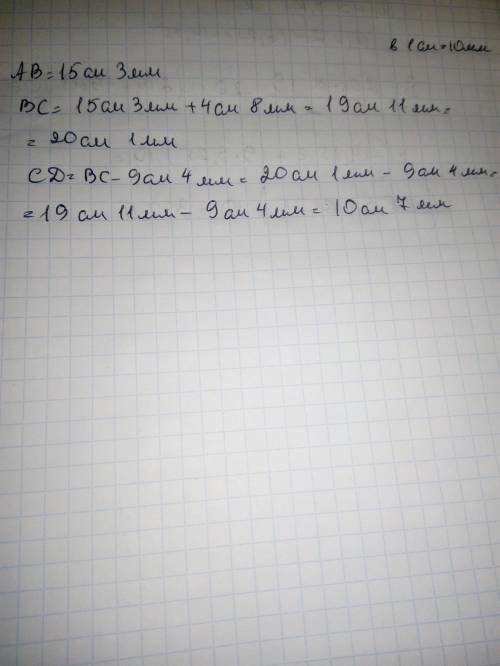 в 1 см = 10мм
AB = 15 см 3мм
BC = 15 см 3мм + 4 см 8 мм = 19 см 11 мм =
= 20 см 1 мм
CD = BC - 9 см 4 мм = 20 см 1 мм - 9 см 4 мм =
= 19 см 11 мм - 9 см 4 мм = 10 см 7 мм